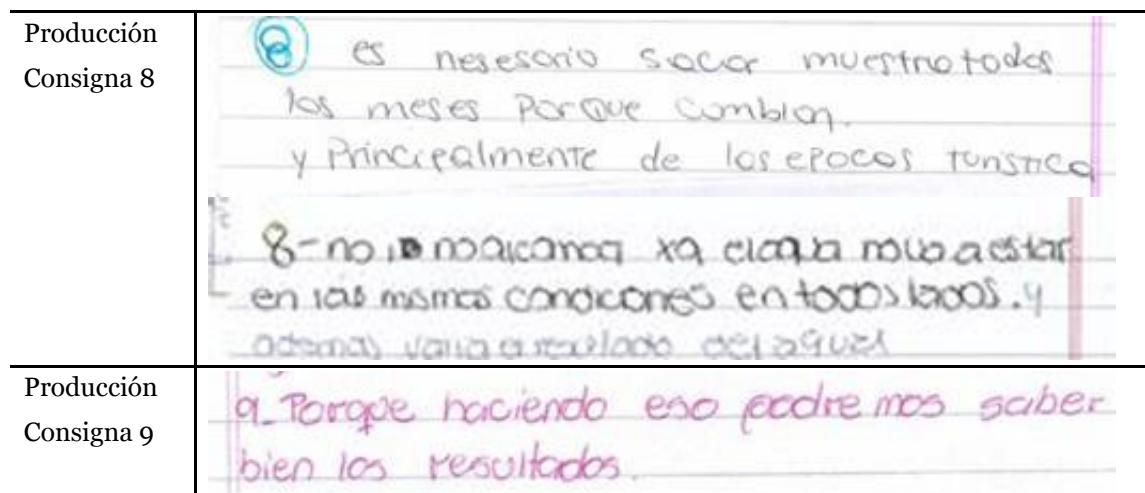 Producción
Consigna 8
8 es nesesario sacar muestra todos
los meses Porque cambian.
y Principalmente de las epocas turistica
8-no no alcanza xq el agua no va a estar
en las mismas condiciones en todos lados. y
ademas varia el resultado del agua
Producción
Consigna 9
9_Porque haciendo eso podremos saber
bien los resultados.